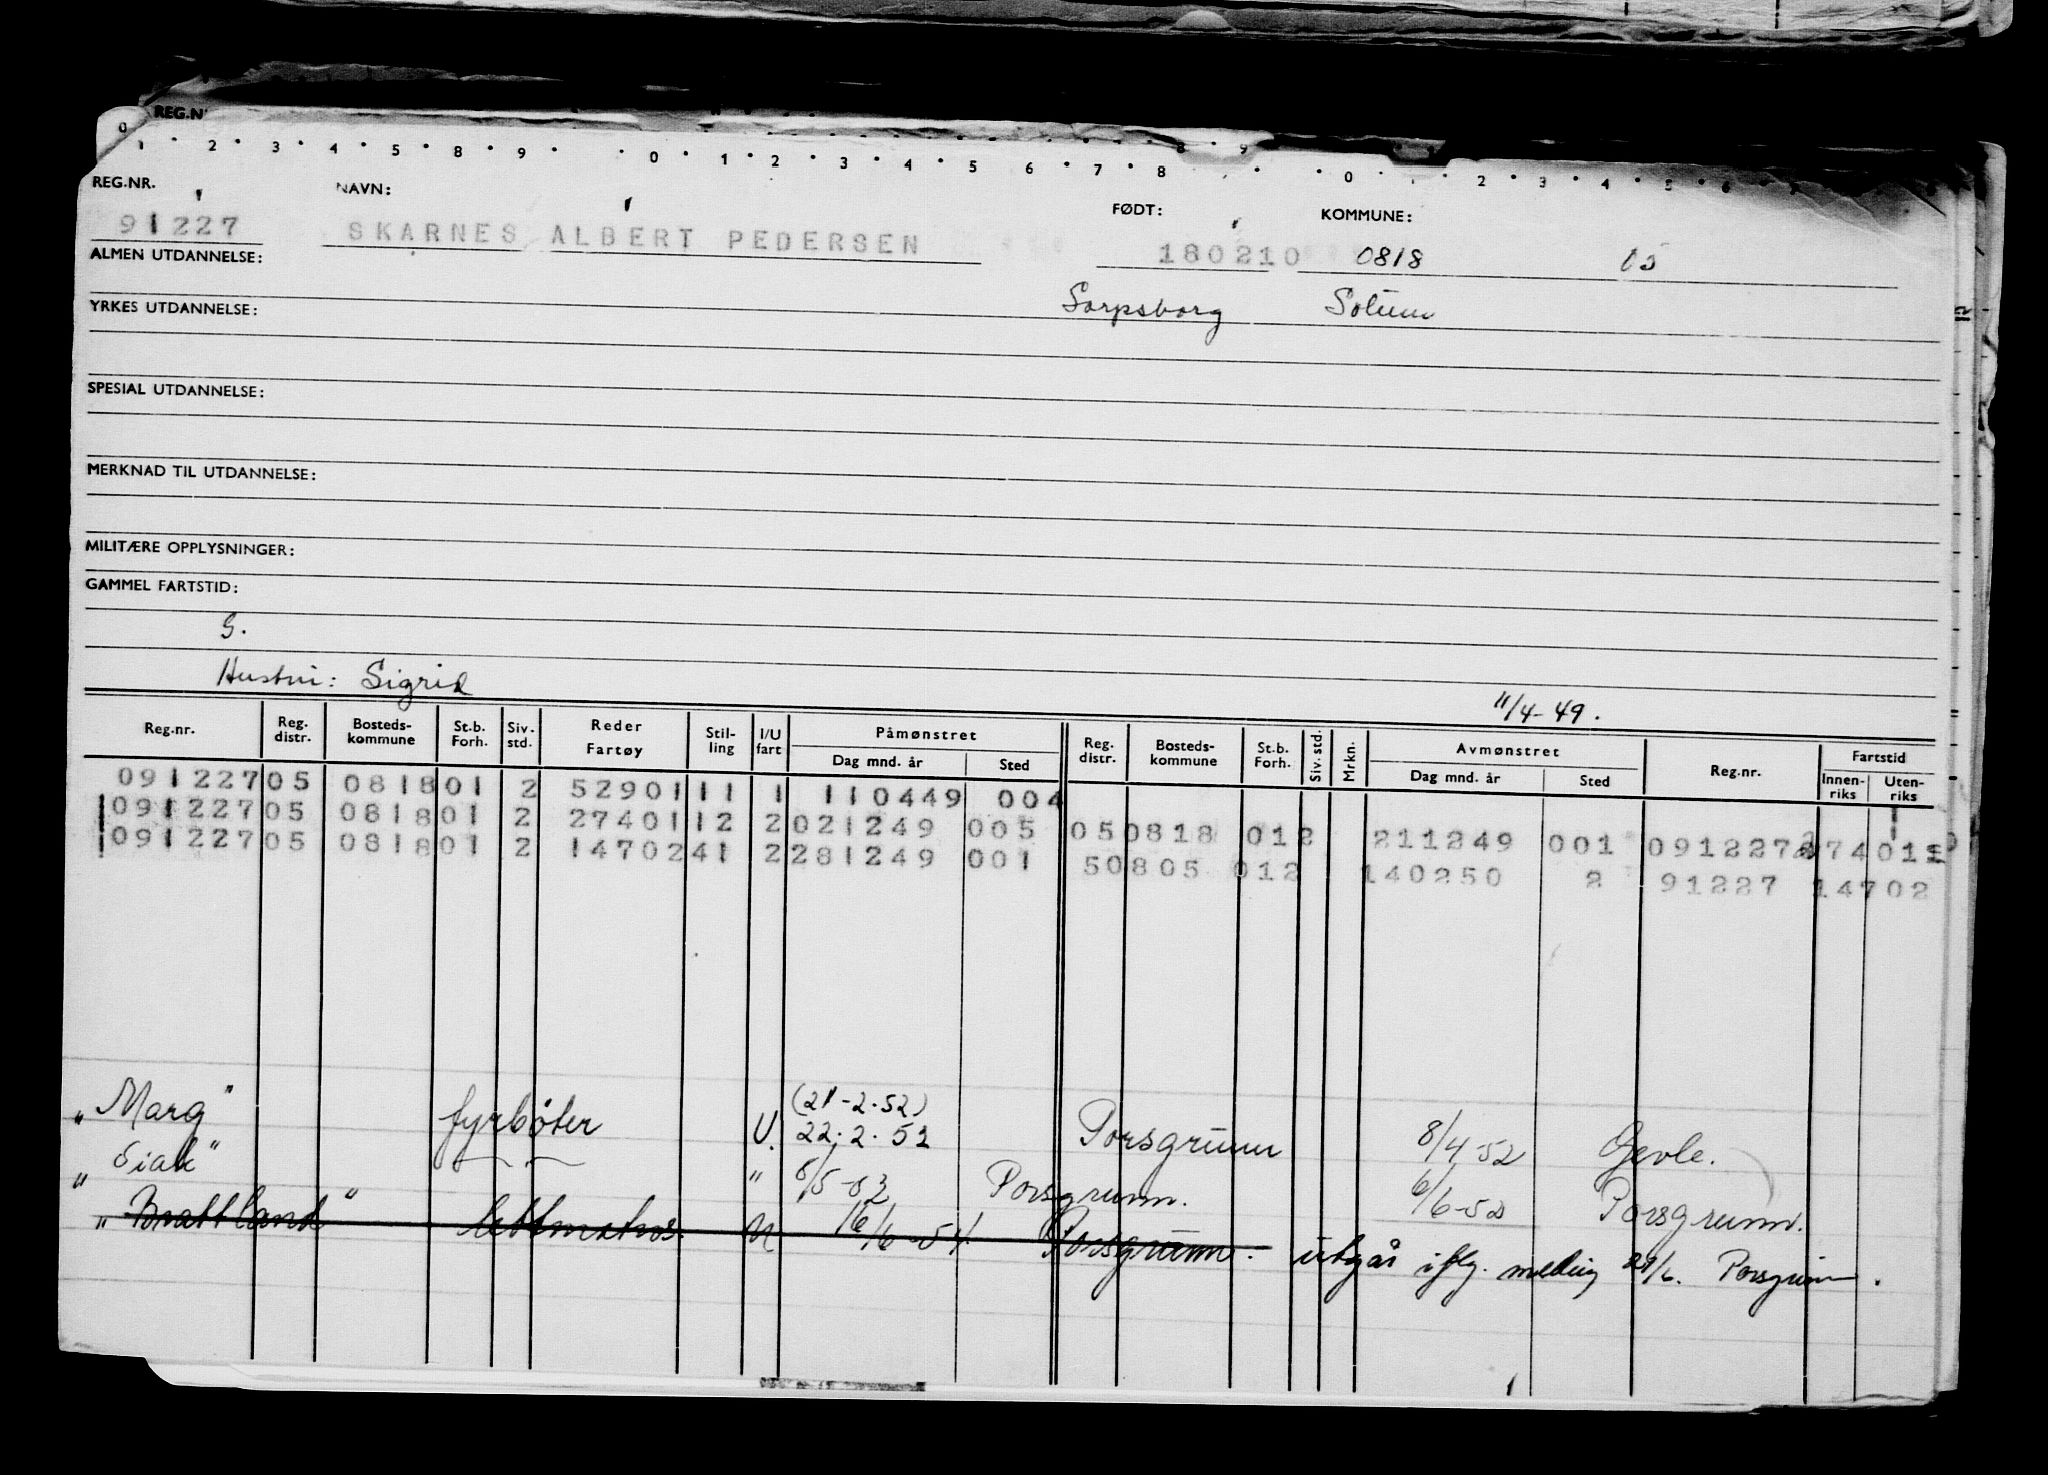 REG.N
0
1 · 2 · 3 · 4 · 5 · 8 · 9 · 0 · 1 · 2 · 3 · 4 · 5 6 · 7 · 8 · 0 · 2 · 3 · 4 · 5 · 6
8 9
REG.NR. NAVN: FØDT: KOMMUNE:
91227 SKARNES ALBERT PEDERSEN 180210 0818 05
ALMEN UTDANNELSE:
Sarpsborg Solum
YRKES UTDANNELSE:
SPESIAL UTDANNELSE:
MERKNAD TIL UTDANNELSE:
MILITÆRE OPPLYSNINGER:
GAMMEL FARTSTID:
G.
Hustru: Sigrid
11/4-49.
Reg.nr. Reg. distr. Bosteds-kommune St.b. Forh. Siv. std. Reder Fartøy Stil-ling I/U fart Påmønstret Dag mnd. år Sted Reg. distr. Bosteds-kommune St.b. Forh. Siv. std. Mrkn. Avmønstret Dag mnd. år Sted Reg.nr. Fartstid Innen-riks Uten-riks
091227 05 0818 01 2 52901 11 1 110449 004
091227 05 0818 01 2 27401 12 2 021249 005 05 0818 01 2 211249 001 091227 27401
091227 05 0818 01 2 14702 41 2 281249 001 5 0805 01 2 140250 2 91227 14702
"Marg" fyrbøter U. (21-2-52) 22.2.52 Porsgrunn 8/4-52 Gevle.
"Siak" " Porsgrunn. Porsgrunn.
"Brattland" lettmatros. 16/6-54 Porsgrunn. utgår iflg. melding 29/6. Porsgrunn.